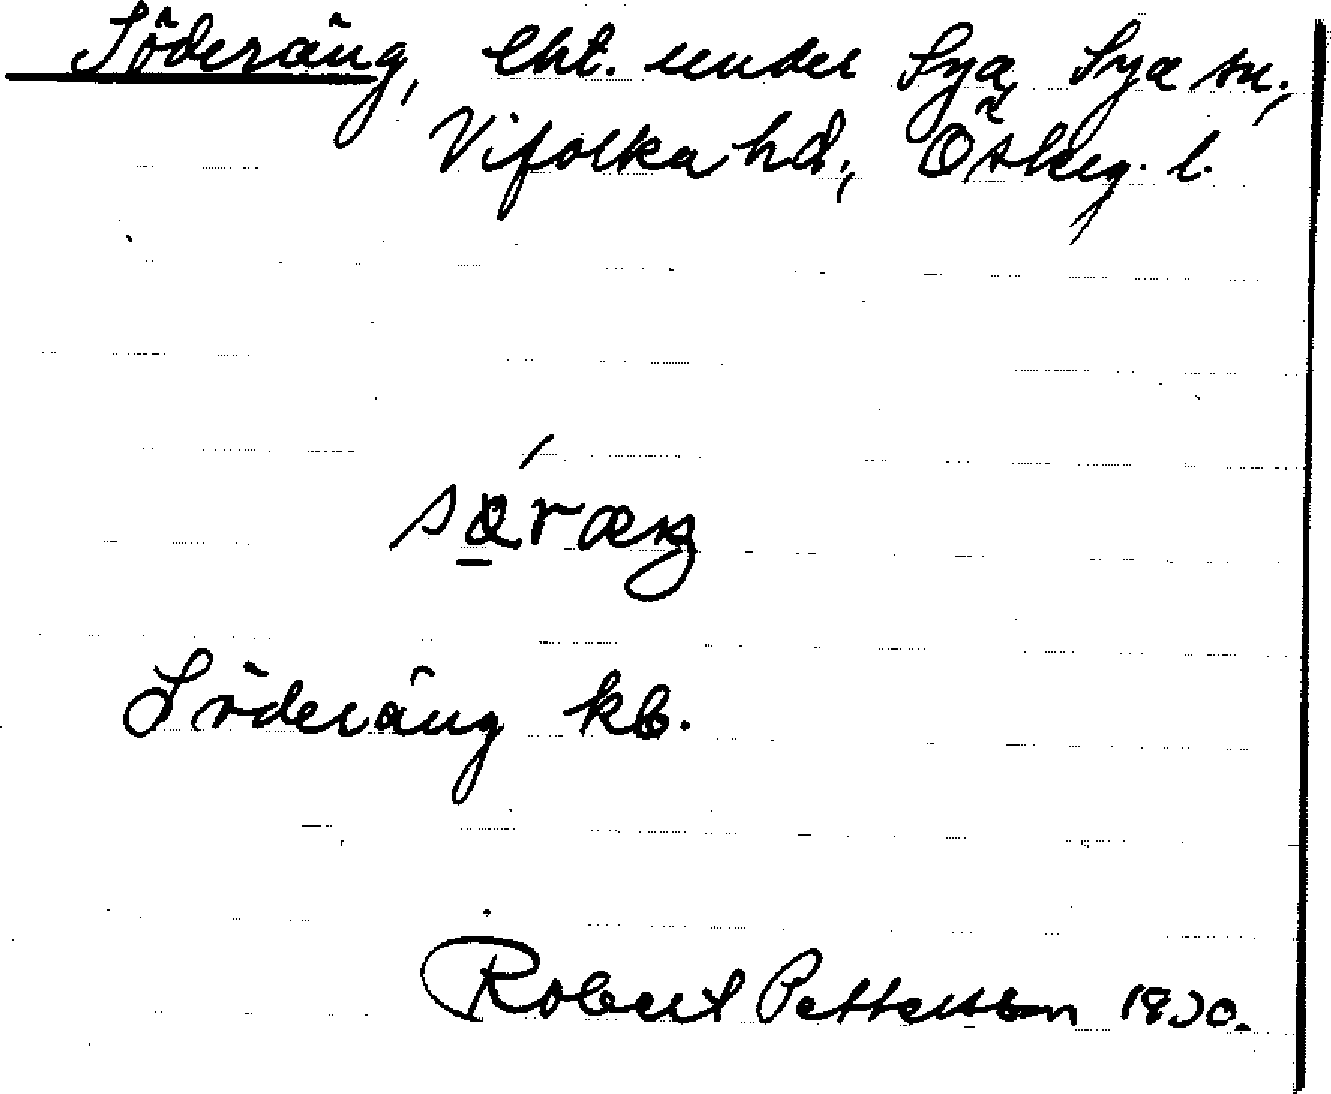 Söderäng, lht. under Sya, Sya sn.,
Vifolka hd., Österg. l.
Söderäng kb.
Robert Pettersson